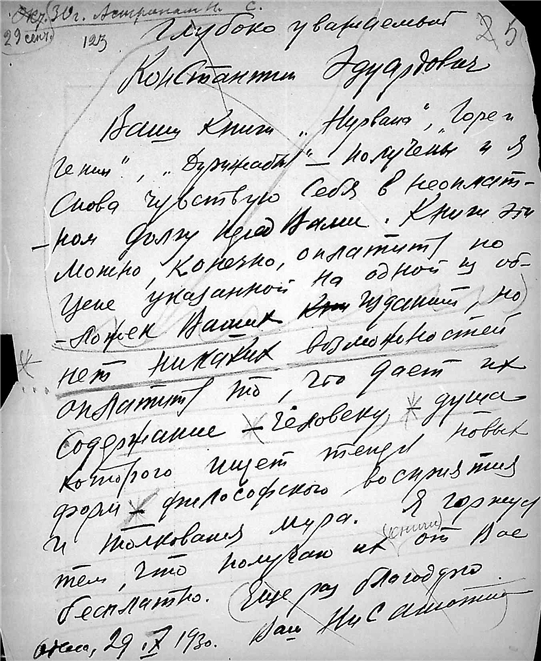 Окт. 30 г.
29 сент
123
5
Глубоко уважаемый
Константин Эдуардович
Ваши книги „Нирвана“, „Горе и
гений“, „Дирижабль“ – получены и я
снова чувствую себя в неоплат-
ном долгу пред Вами. Книги эти
можно, конечно, оплатить по
цене указанной на одной из об-
ложек Ваших изданий, но
нет никаких возможностей
оплатить то, что дает их
содержание – человеку, – душа
которого ищет теперь новых
форм – философского восприятия
и толкования мира. Я горжусь
(книги)
тем, что получаю их от Вас
бесплатно. Еще раз благодарю.
29.X 1930. Ваш